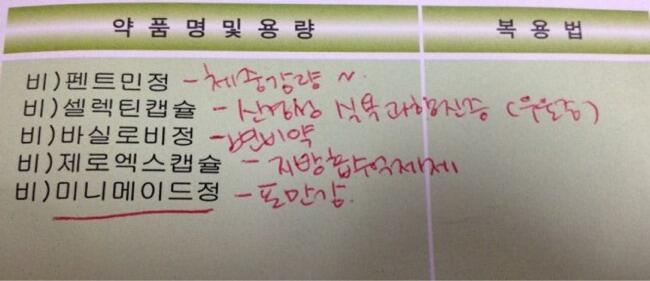 약 품 명 및 용 량 복 용 법
비)펜트민정 - 체중감량 ~
비)셀렉틴캡슐 - 신경성 식욕과항진증 (우울증)
비)바실로비정 - 변비약
비)제로엑스캡슐 - 지방흡수억제제
비)미니메이드정 - 포만감